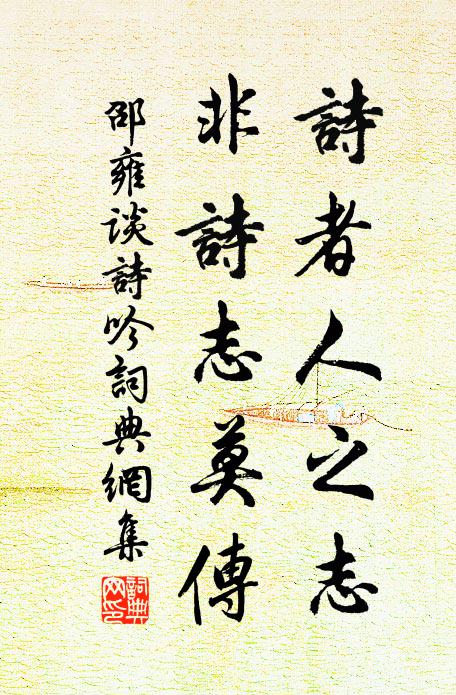 詩者人之志
非詩志莫傳
邵雍谈詩吟詞典網集
詞典網印